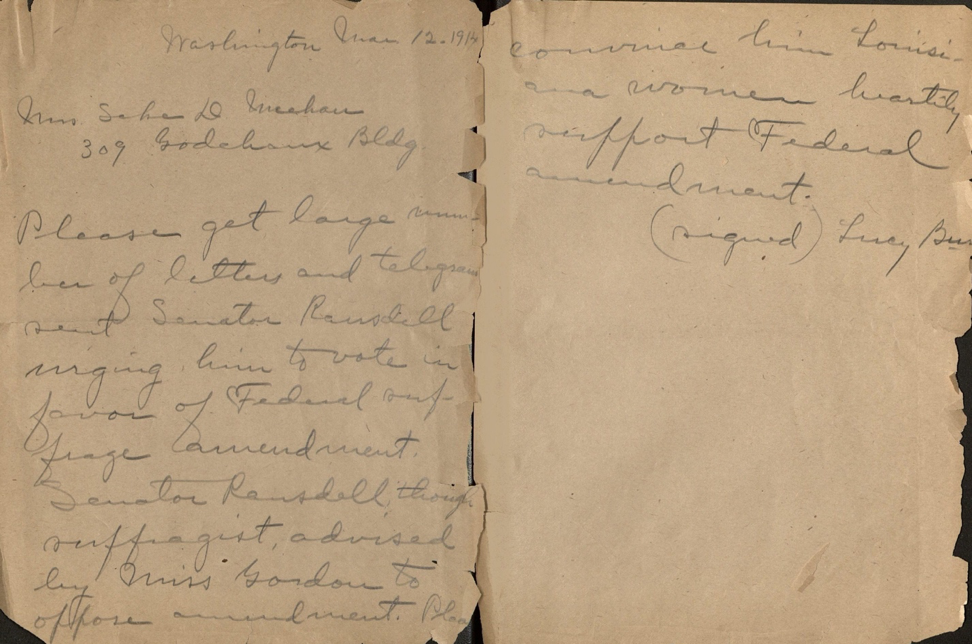 Washington Mar 12. 1914
Mrs. Sake D Meehan
309 Godchaux Bldg.
Please get large num-
ber of letters and telegram
sent Senator Ransdell
urging him to vote in
favor of Federal suf-
frage amendment.
Senator Ransdell, though
suffragist, advised
by Miss Gordon to
oppose amendment. Plea
convince him Louisi-
ana women heartily
support Federal
amendment.
(signed) Lucy Bur